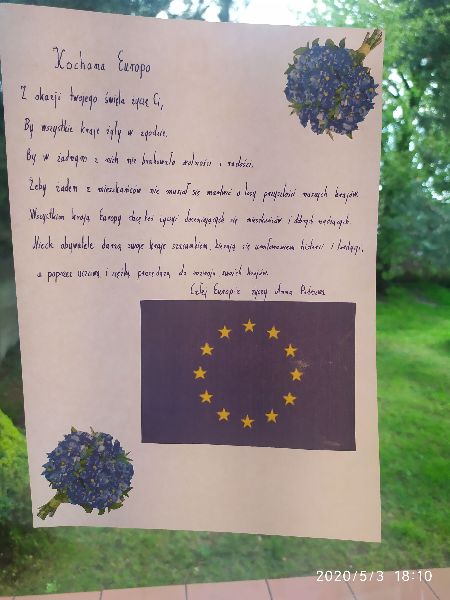 Kochana Europo
Z okazji twojego święta życzę Ci,
By wszystkie kraje żyły w zgodzie,
By w żadnym z nich nie brakowało wolności i radości.
Żeby żaden z mieszkańców nie musiał się martwić o losy przyszłości naszych krajów.
Wszystkim krajom Europy chcę też życzyć doceniających się mieszkańców i dobrych rządzących.
Niech obywatele darzą swoje kraje szacunkiem, kierują się umiłowaniem historii i tradycji,
a poprzez uczciwą i ciężką pracę dążą do rozwoju swoich krajów.
Całej Europie życzy Anna
2020/5/3 18:10